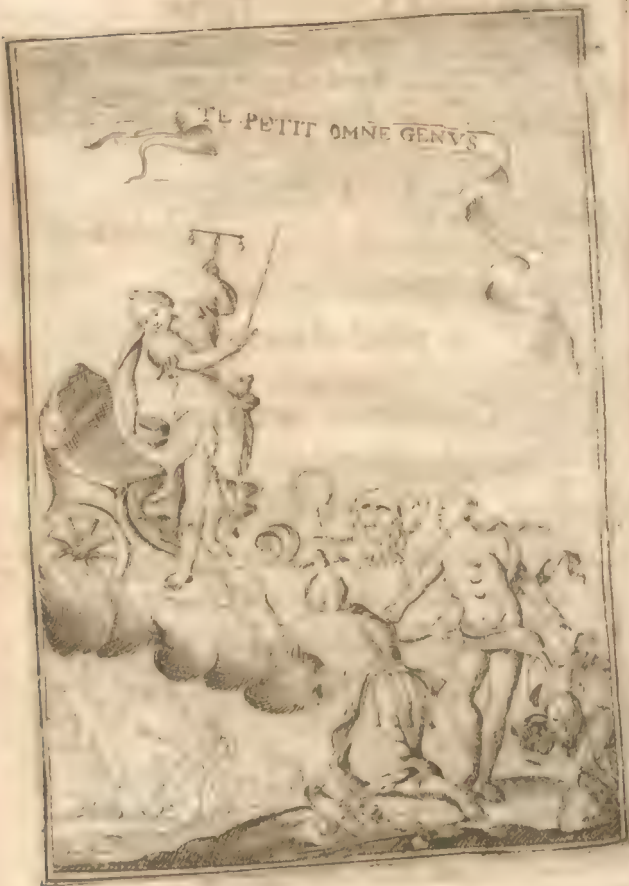 TE PETIT OMNE GENVS